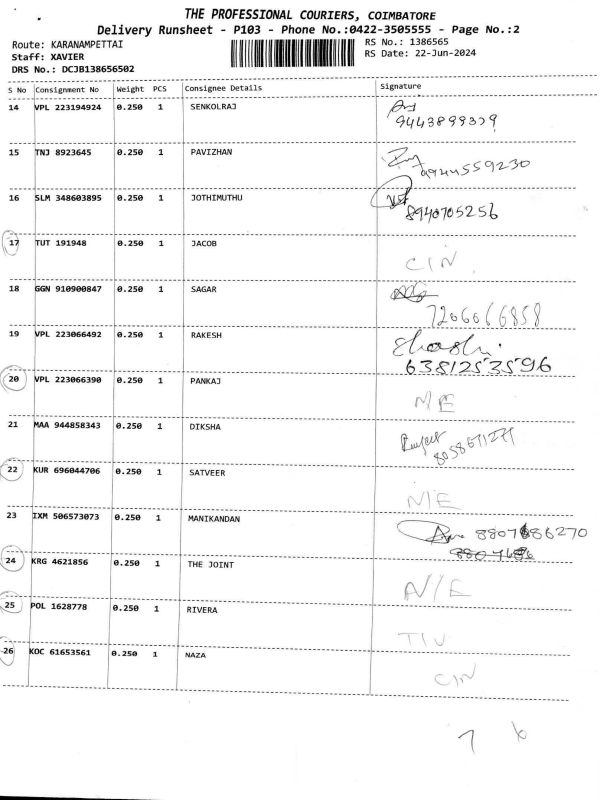 THE PROFESSIONAL COURIERS, COIMBATORE
Delivery Runsheet - P103 - Phone No.:0422-3505555 - Page No.:2
Route: KARANAMPETTAI RS No.: 1386565
Staff: XAVIER RS Date: 22-Jun-2024
DRS No.: DCJB138656502
S No Consignment No Weight PCS Consignee Details Signature
14 VPL 223194924 0.250 1 SENKOLRAJ
9443899329
15 TNJ 8923645 0.250 1 PAVIZHAN
9944559230
16 SLM 348603895 0.250 1 JOTHIMUTHU
8940705256
17 TUT 191948 0.250 1 JACOB
CIN
18 GGN 910900847 0.250 1 SAGAR
7206066858
19 VPL 223066492 0.250 1 RAKESH Shashi
6381253596
20 VPL 223066390 0.250 1 PANKAJ
N/E
21 MAA 944858343 0.250 1 DIKSHA
22 KUR 696044706 0.250 1 SATVEER
N/E
23 IXM 506573073 0.250 1 MANIKANDAN
8807686270
24 KRG 4621856 0.250 1 THE JOINT
N/E
25 POL 1628778 0.250 1 RIVERA
26 KOC 61653561 0.250 1 NAZA
CIN
7 6